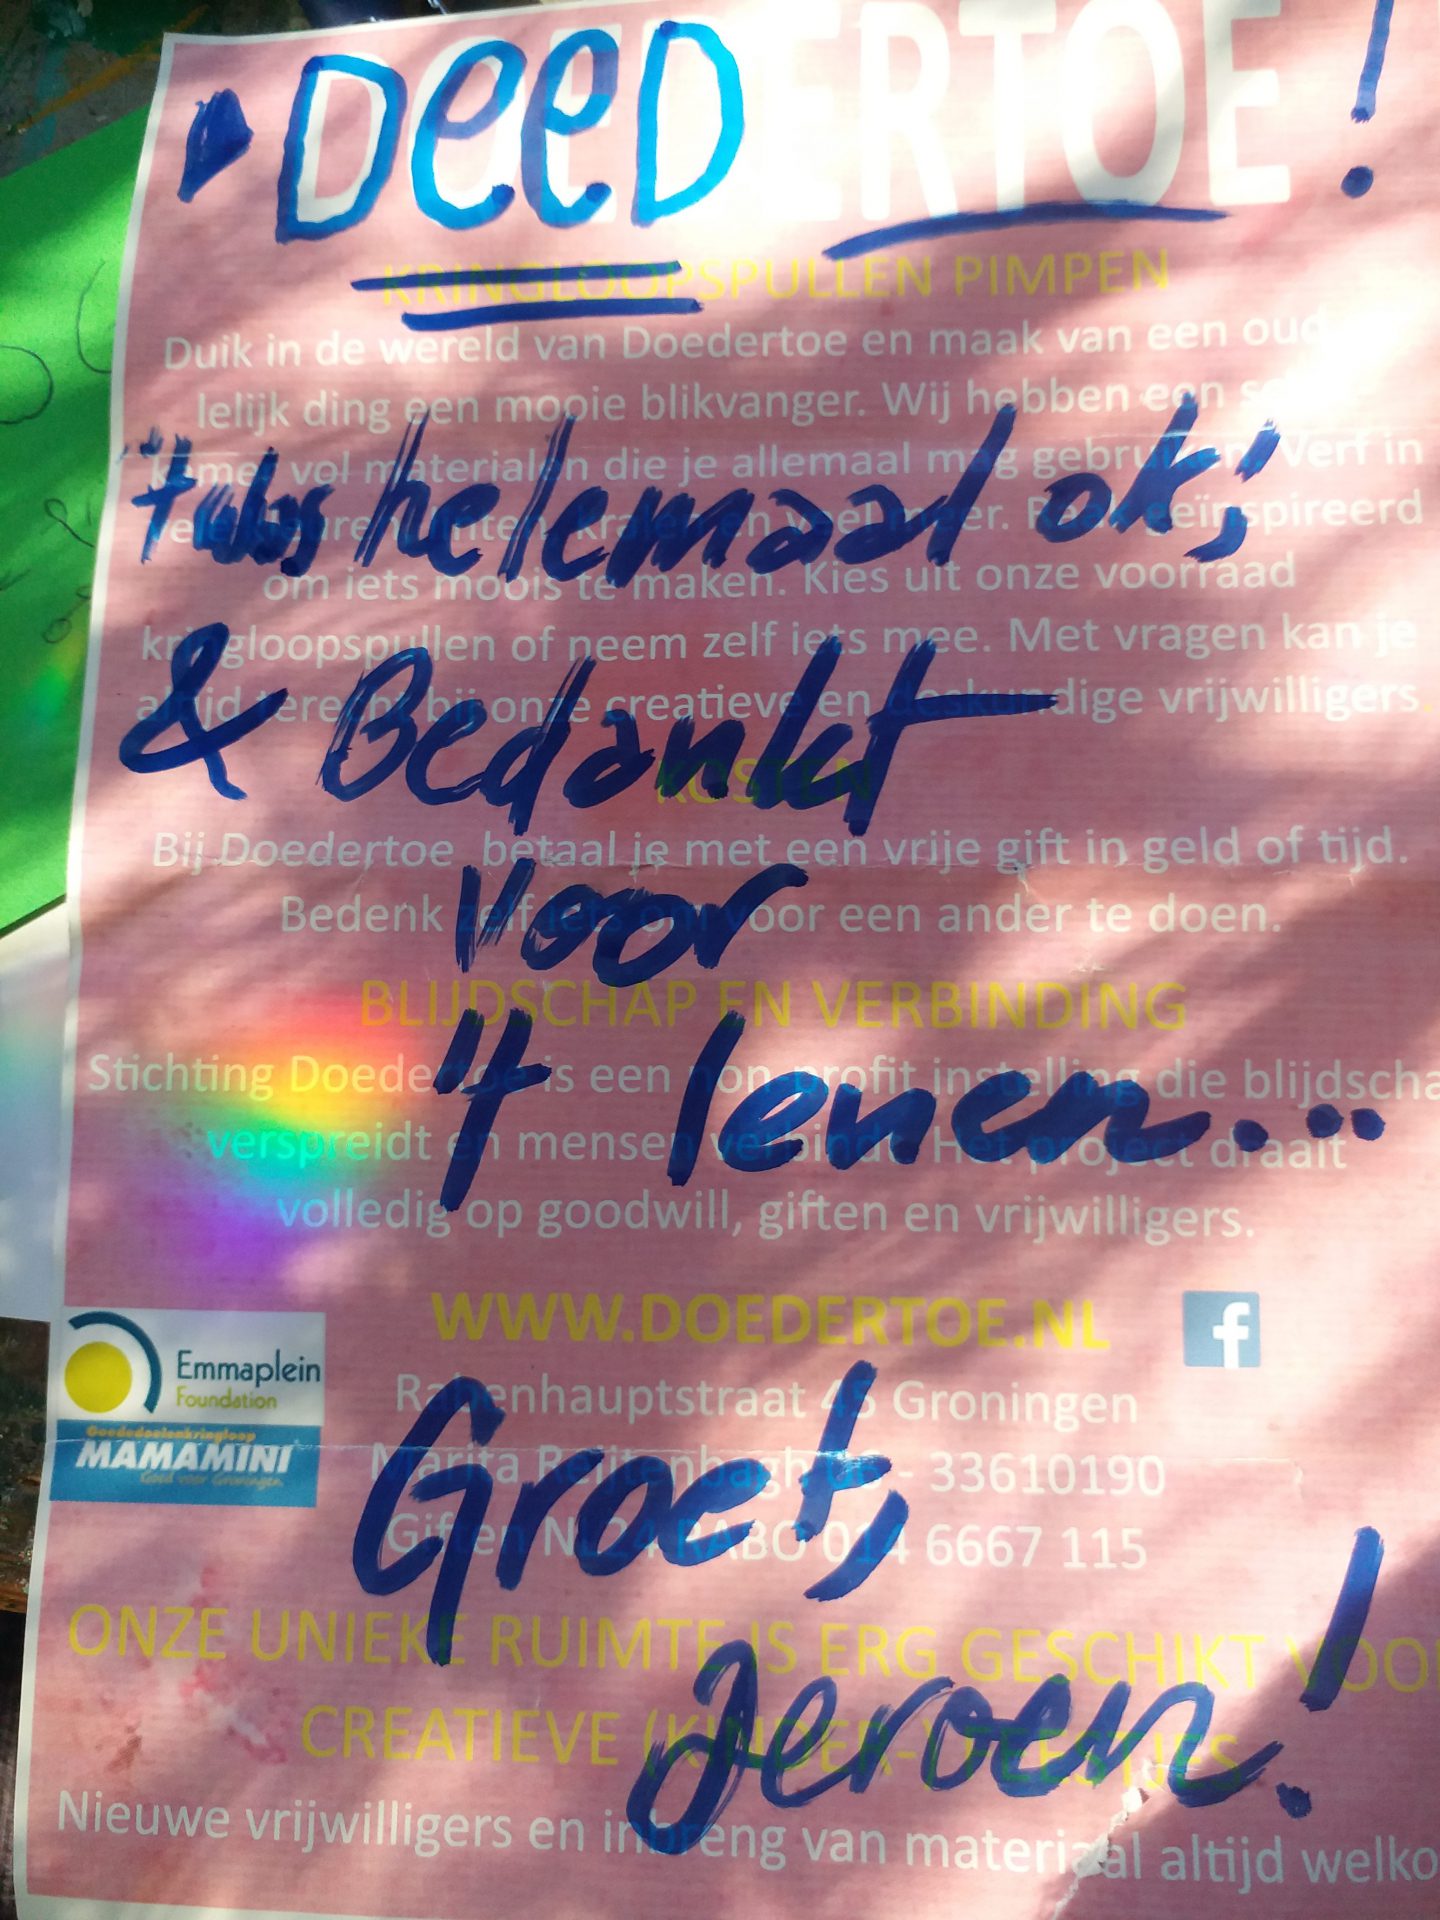 DeeD
DOEDERTOE!
KRINGLOOPSPULLEN PIMPEN
Duik in de wereld van Doedertoe en maak van een oud
lelijk ding een mooie blikvanger. Wij hebben een
kamer vol materialen die je allemaal mag gebruiken. Verf in
helemaal ok;
geïnspireerd
om iets moois te maken. Kies uit onze voorraad
kringloopspullen of neem zelf iets mee. Met vragen kan je
altijd terecht bij onze creatieve en deskundige vrijwilligers.
& Bedankt
KOSTEN
Bij Doedertoe betaal je met een vrije gift in geld of tijd.
voor
Bedenk zelf iets om voor een ander te doen.
BLIJDSCHAP EN VERBINDING
Stichting Doedertoe is een non-profit instelling die blijdscha
't lenen....
verspreidt en mensen verbindt. Het project draait
volledig op goodwill, giften en vrijwilligers.
WWW.DOEDERTOE.NL
f
Emmaplein
Foundation
Goededoelenkringloop
MAMAMINI
Goed voor Groningen
Rabenhauptstraat 45 Groningen
Groet,
Marita Reijtenbagh 06 - 33610190
Giften NL24 RABO 014 6667 115
ONZE UNIEKE RUIMTE IS ERG GESCHIKT VOO
Jeroen!
CREATIEVE (KINDER-) FEESTJES
Nieuwe vrijwilligers en inbreng van materiaal altijd welko